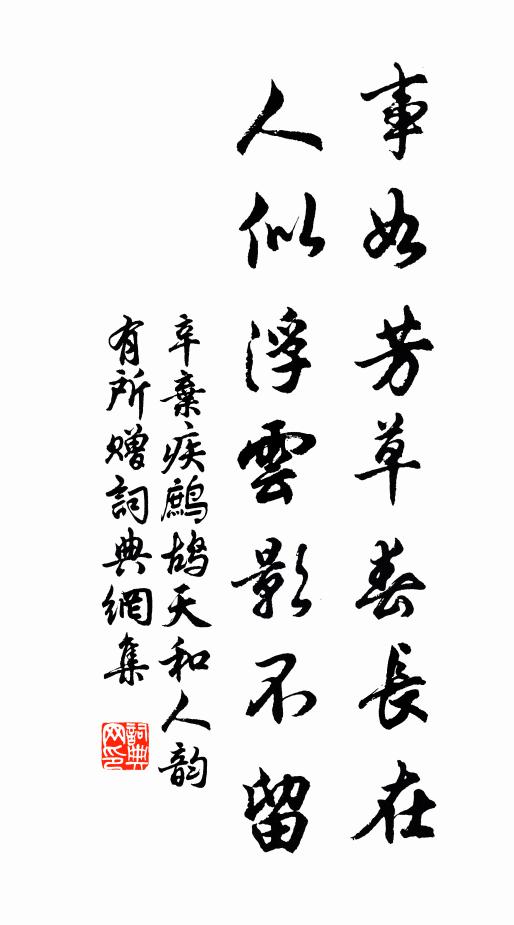 事如芳草春長在
人似浮雲影不留
辛棄疾鷓鴣天和人韵
有所贈詞典網集
詞典
网印